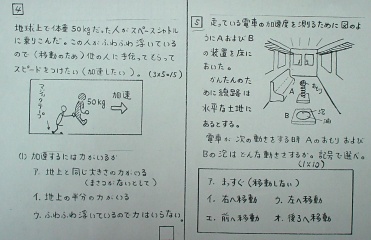 4
地球上で体重50kgだった人がスペースシャトル
に乗りこんだ。この人がふわふわ浮いているの
で(移動のため)他の人に手伝ってもらって
スピードをつけたい(加速したい)。(3×5=15)
50kg
加速
(1) 加速するには力がいるか
ア. 地上と同じ大きさの力がいる
(まさつがないとして)
イ. 地上の半分の力がいる
ウ. ふわふわ浮いているので力はいらない。
5
走っている電車の加速度を測るために図のよ
うにAおよびB
の装置を床に
おいた。
かんたんのた
めに線路は
水平な土地に
あるとする。
A
おもり
B
泡
電車が次の動きをする時Aのおもりおよび
Bの泡はどんな動きをするか。記号で選べ。
(1×10)
ア. まっすぐ(移動しない)
イ. 右へ移動 ウ. 左へ移動
エ. 前へ移動 オ. 後ろへ移動